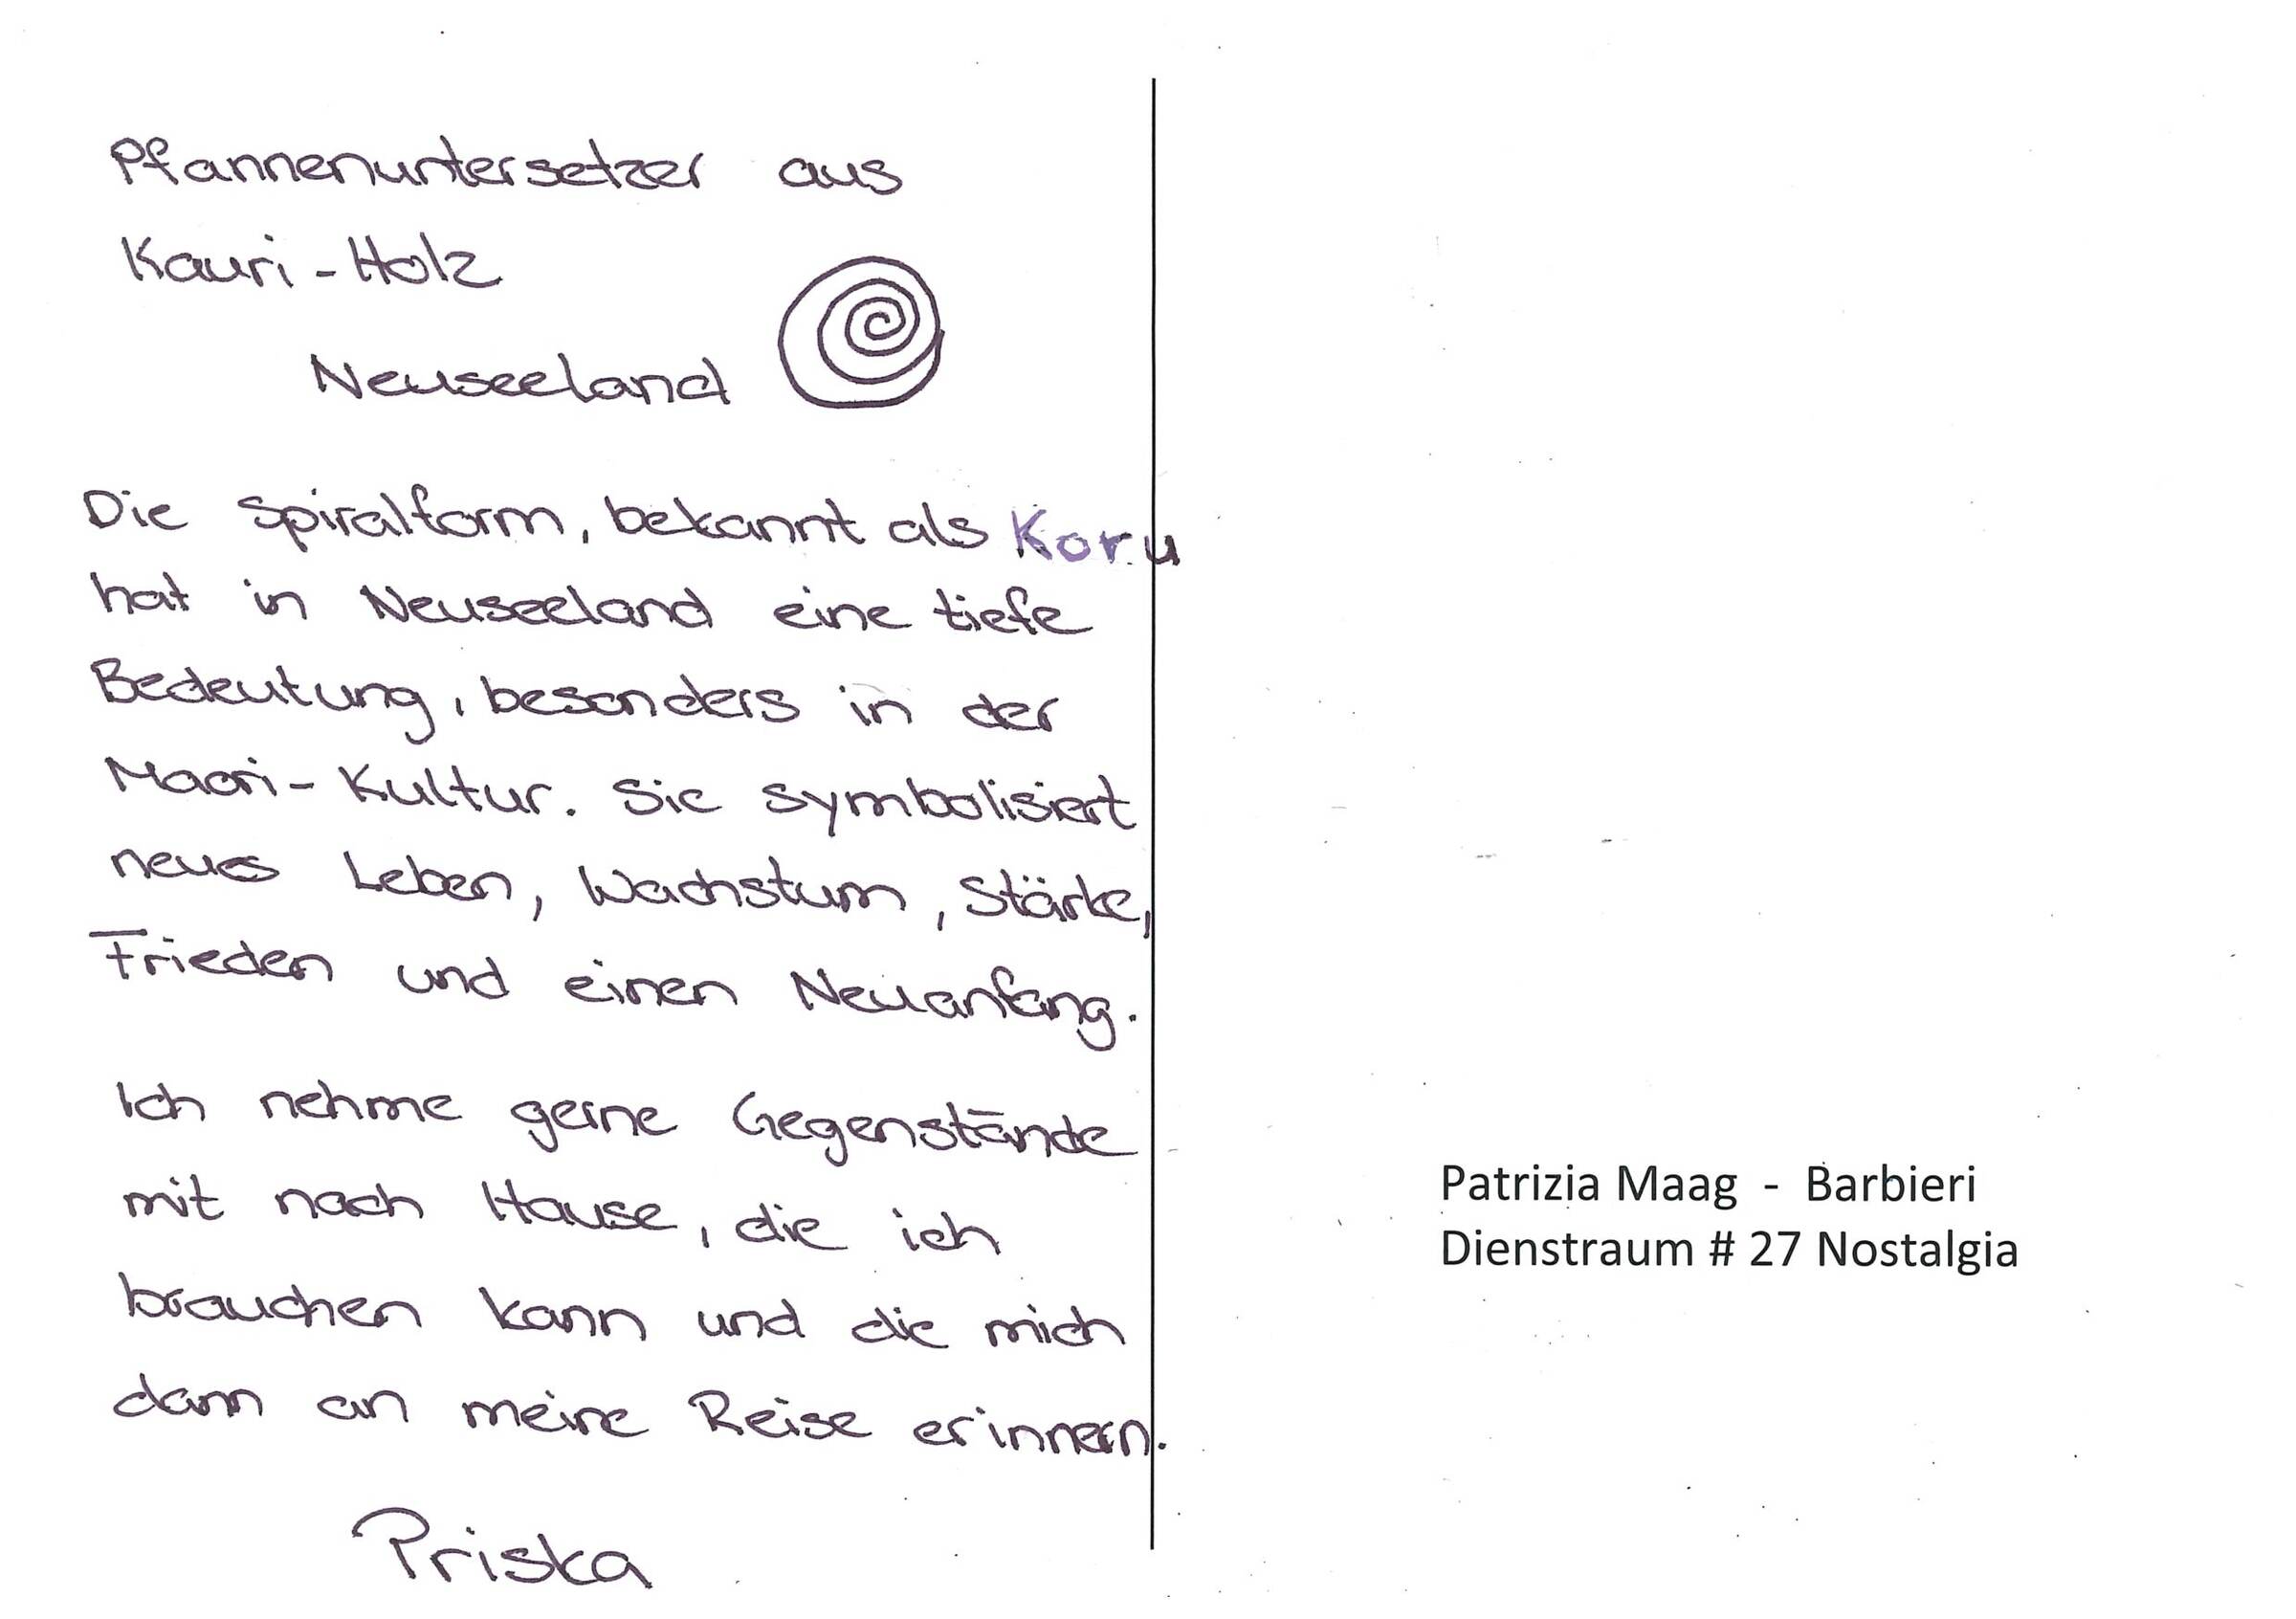 Pfannenuntersetzer aus
Kauri-Holz
Neuseeland
Die Spiralform, bekannt als Koru
hat in Neuseeland eine tiefe
Bedeutung, besonders in der
Maori-Kultur. Sie symbolisiert
neues Leben, Wachstum, Stärke,
Frieden und einen Neuanfang.
Ich nehme gerne Gegenstände
mit nach Hause, die ich
brauchen kann und die mich
dann an meine Reise erinnern.
Priska
Patrizia Maag - Barbieri
Dienstraum # 27 Nostalgia